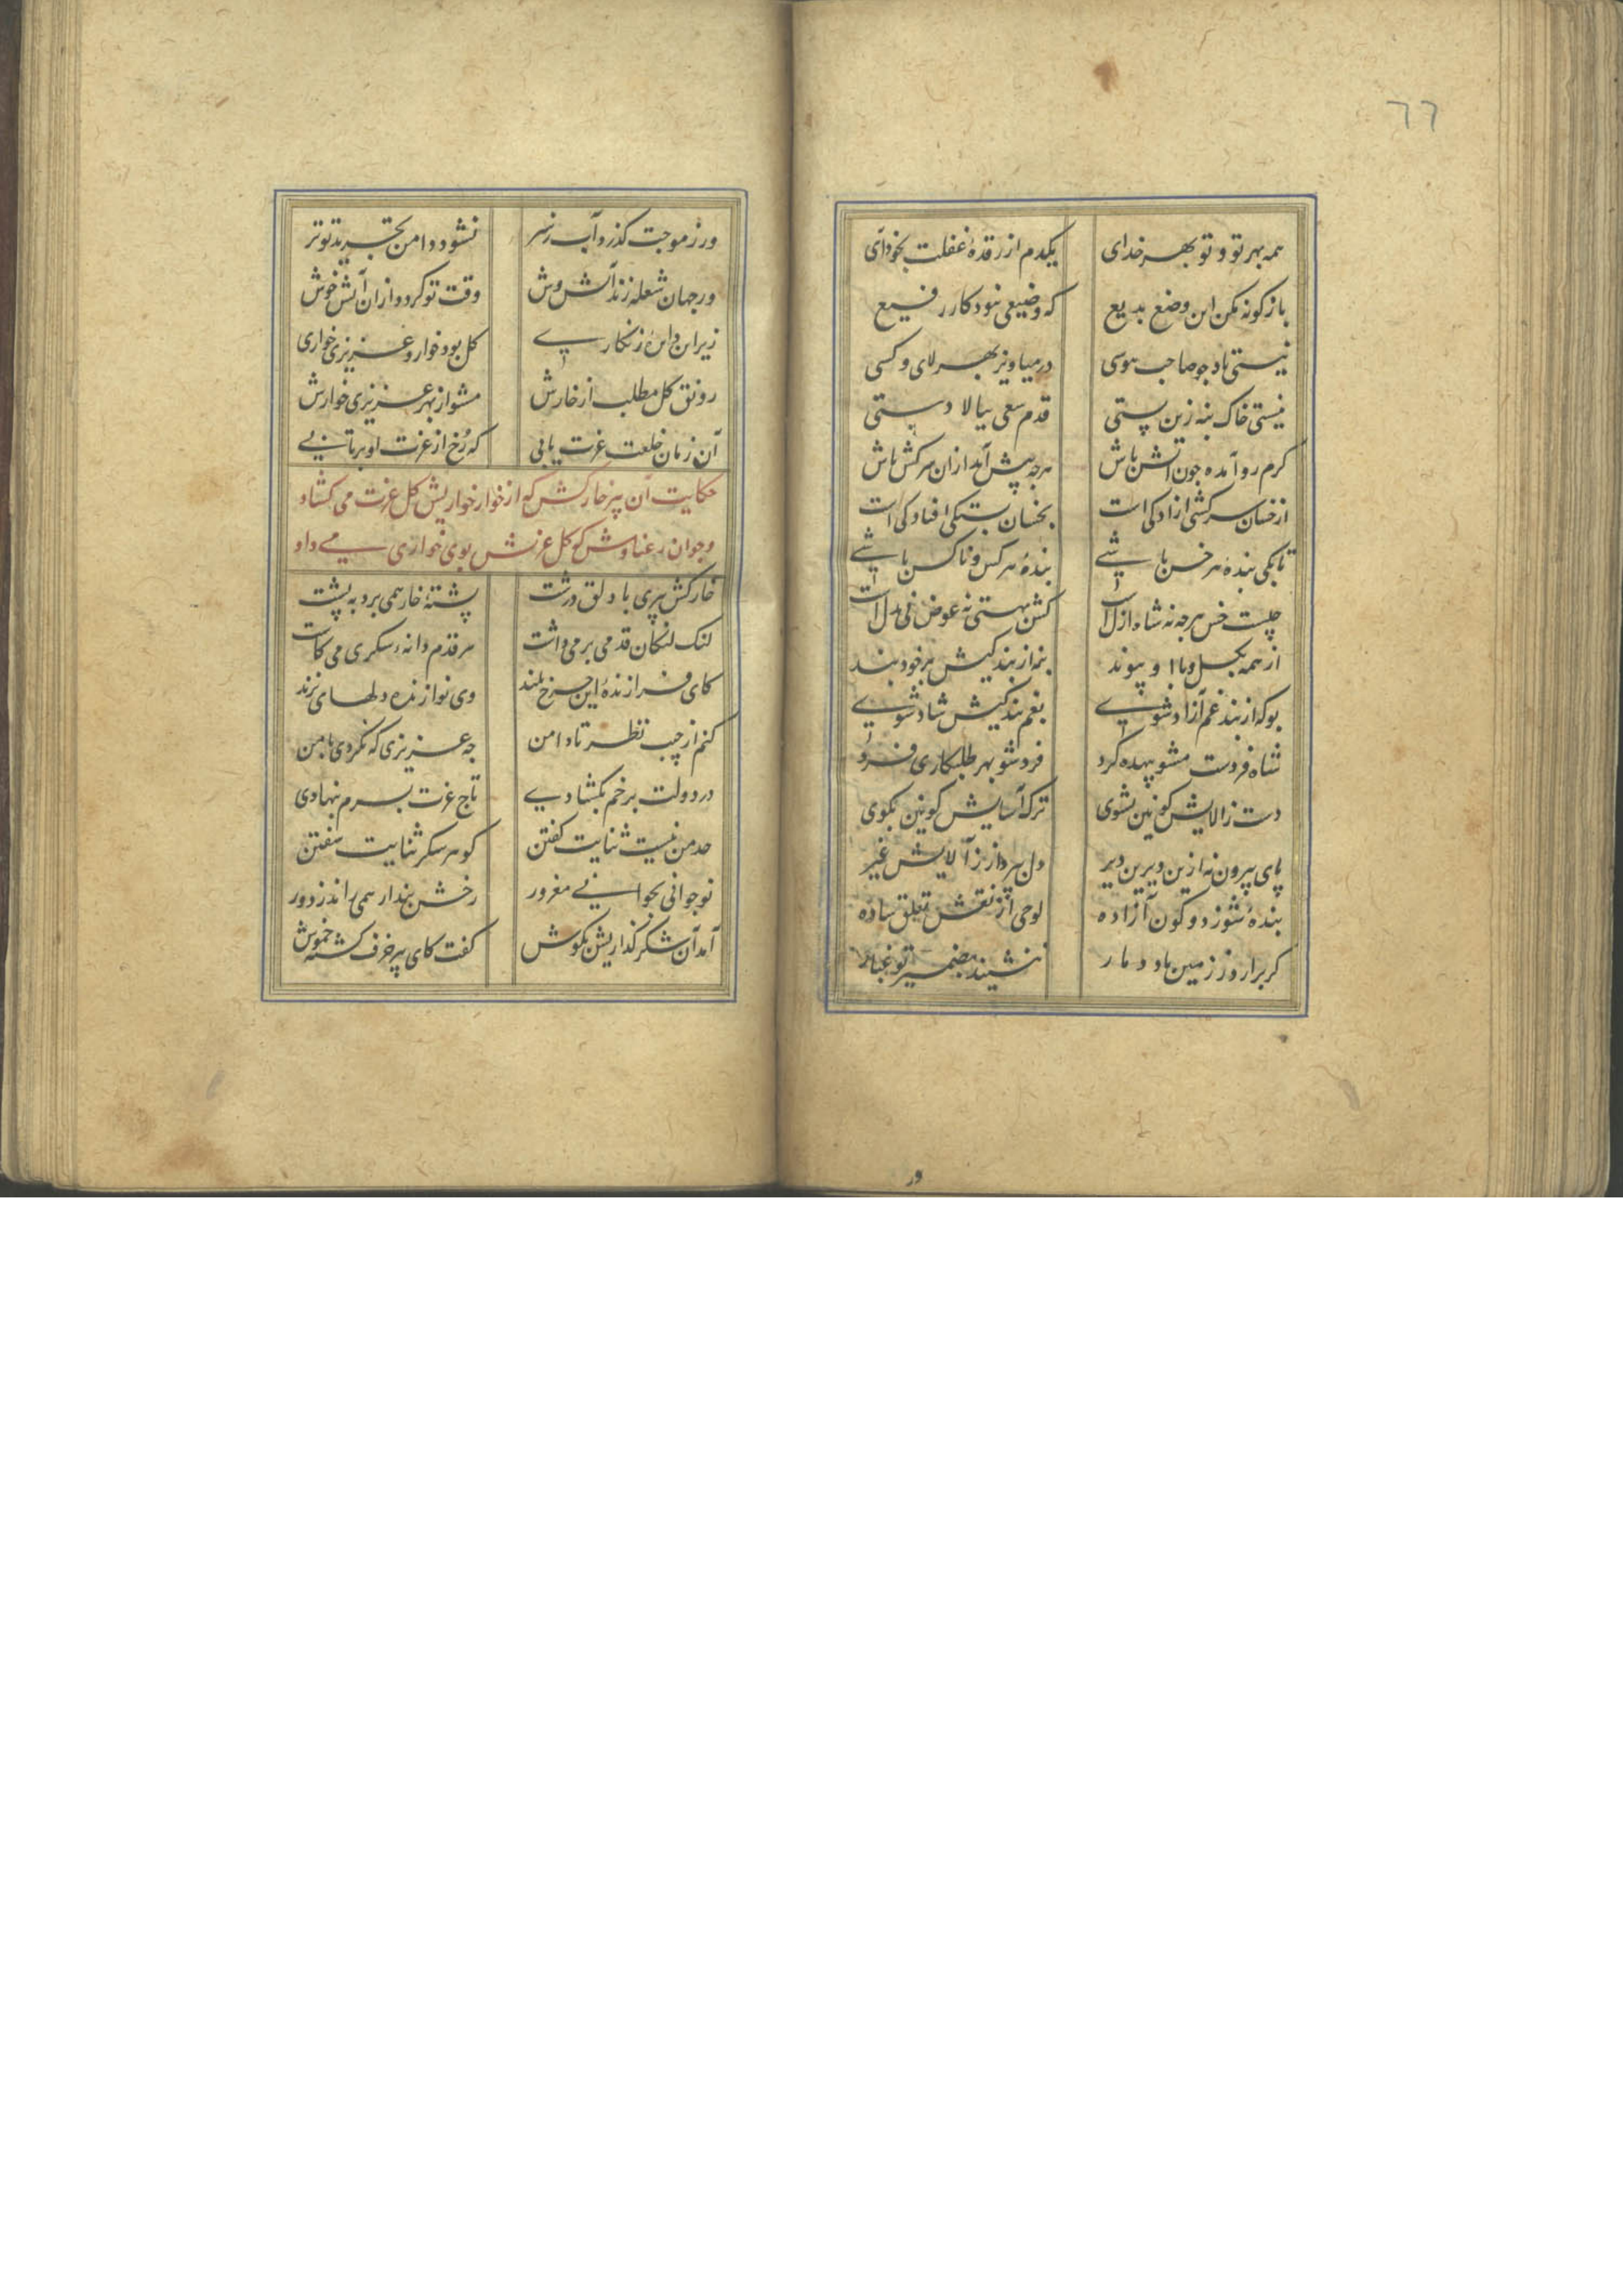 ٦٦
همه بهر تو و تو بهر خدای یکدم از رقدهٔ غفلت بخود آی
بازکونه مکن این وضع بدیع که وضیعی نبود کار رفیع
نیستی باد جو صاحب هوسی درمیاویز بهر لای و کسی
نیستی خاک بنه زین پستی قدم سعی ببالا دستی
کرم رو آمده جون آتش باش هرجه پیش آید ازان سرکش باش
از خسان سرکشی آزادکی است بخسان بستکی افتادکی است
تا بکی بندهٔ هر خس باشی بندهٔ هر کس و ناکس باشی
چیست خس هرجه نه شاه ازل است کش بهستی نه عوض نی بدل است
از همه بکسل و با او پیوند بنه از بندکیش بر خود بند
بو که از بند غم آزاد شوی بغم بندکیش شاد شوی
شاه فردست مشو بیهده کرد فرد شو بهر طلبکاری فرد
دست ز الایش کونین بشوی ترک آسایش کونین بکوی
پای بیرون نه ازین دیرین دیر دل بپرداز ز آلایش غیر
بندهٔ شو ز دو کون آزاده لوحی از نقش تعلق ساده
کر برارد ز زمین باد دمار ننشیند بضمیر تو غبار
ور
ور ز موجت کذرد آب ز سر نشود دامن تجرید تو تر
ور جهان شعله زند آتش وش وقت تو کردد ازان آتش خوش
زیر این دایرهٔ زنکاری کل بود خوار و عزیزی خواری
رونق کل مطلب از خارش مشو از بهر عزیزی خوارش
آن زمان خلعت عزت یابی که رخ از عزت او برتابی
حکایت آن پیر خارکش که از خوار خواریش کل عزت می کشاد
و جوان رعنا وش که کل عزتش بوی خواری می داد
خارکش پیری با دلق درشت پشتهٔ خار همی برد به پشت
لنک لنکان قدمی برمی داشت هر قدم دانهٔ شکری می کاشت
کای فرازندهٔ این چرخ بلند وی نوازندهٔ دلهای نژند
کنم از جیب نظر تا دامن جه عزیزی که نکردی با من
در دولت برخم بکشادی تاج عزت بسرم بنهادی
حد من نیست ثنایت کفتن کوهر شکر ثنایت سفتن
نوجوانی بجوانی مغرور رخش پندار همی راند ز دور
آمد آن شکر کذاریش بکوش کفت کای پیر خرف کشته خموش